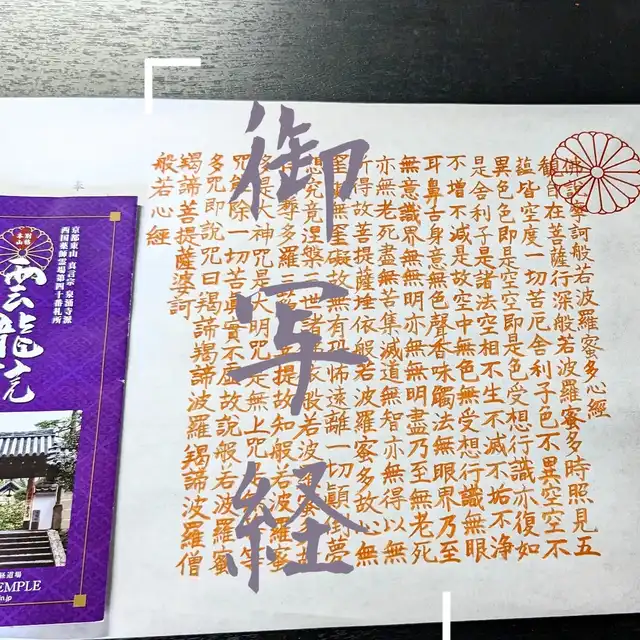 御写経
佛説摩訶般若波羅蜜多心經
観自在菩薩行深般若波羅蜜多時照見五
蘊皆空度一切苦厄舍利子色不異空空不
異色色即是空空即是色受想行識亦復如
是舍利子是諸法空相不生不滅不垢不浄
不増不減是故空中無色無受想行識無眼
耳鼻舌身意無色聲香味觸法無眼界乃至
無意識界無無明亦無無明盡乃至無老死
亦無老死盡無苦集滅道無智亦無得以無
所得故菩提薩埵依般若波羅蜜多故心無
罣礙無罣礙故無有恐怖遠離一切顛倒夢
想究竟涅槃世般若波
多羅三菩提故知般若波羅蜜
是大神咒是大明咒是無上咒等
咒能除一切苦真實不虚故説般若波羅蜜
多咒即説咒曰羯諦羯諦波羅羯諦波羅僧
羯諦菩提薩婆訶
般若心經
京都東山 真言宗 泉涌寺派
西国薬師霊場第四十番札所
別格本山
雲龍院
道場
EMPLE
n.jp